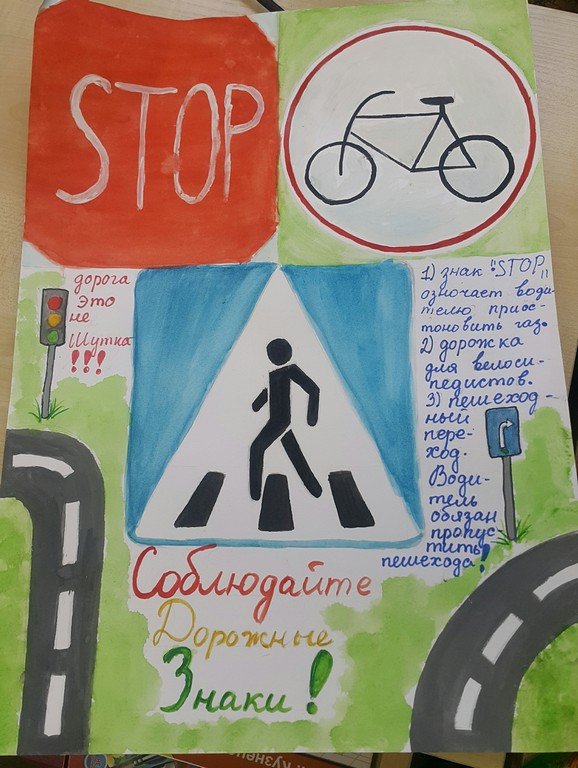 STOP
дорога
это
не
Шутка
!!!
1) знак "STOP"
означает води-
телю приос-
тоновить газ.
2) дорожка
для велоси-
педистов.
3) пешеход-
ный
пере-
ход.
Води-
тель
обязан
пропус
тить
пешехода!
Соблюдайте
Дорожные
Знаки!